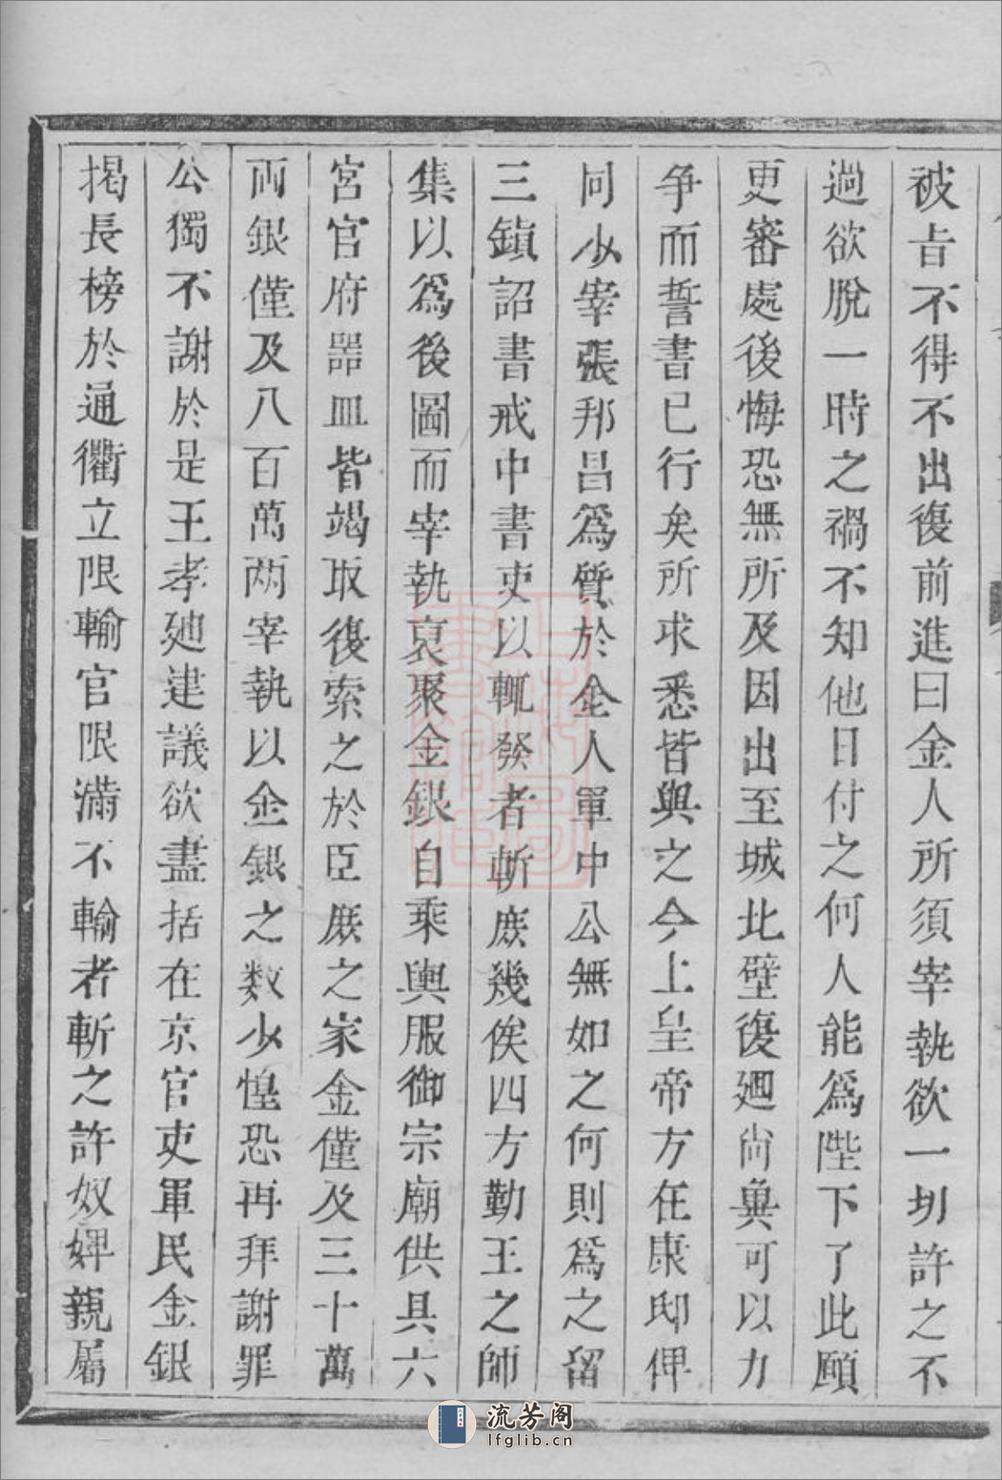 被㫖不得不出復前進曰金人所須宰執欲一切許之不
過欲脫一時之禍不知他日付之何人能爲陛下了此願
更審處後悔恐無所及因出至城北壁復廻尙兾可以力
爭而誓書已行矣所求悉皆與之今上皇帝方在康邸俾
同少宰張邦昌爲質於金人軍中公無如之何則爲之留
三鎭詔書戒中書吏以輒發者斬庶幾俟四方勤王之師
集以爲後圖而宰執裒聚金銀自乘輿服御宗廟供具六
宮官府器皿皆竭取復索之於臣庶之家金僅及三十萬
兩銀僅及八百萬两宰執以金銀之数少惶恐再拜謝罪
公獨不謝於是王孝廸建議欲盡括在京官吏軍民金銀
揭長榜於通衢立限輸官限滿不輸者斬之許奴婢親屬
流芳阁
lfglib.cn